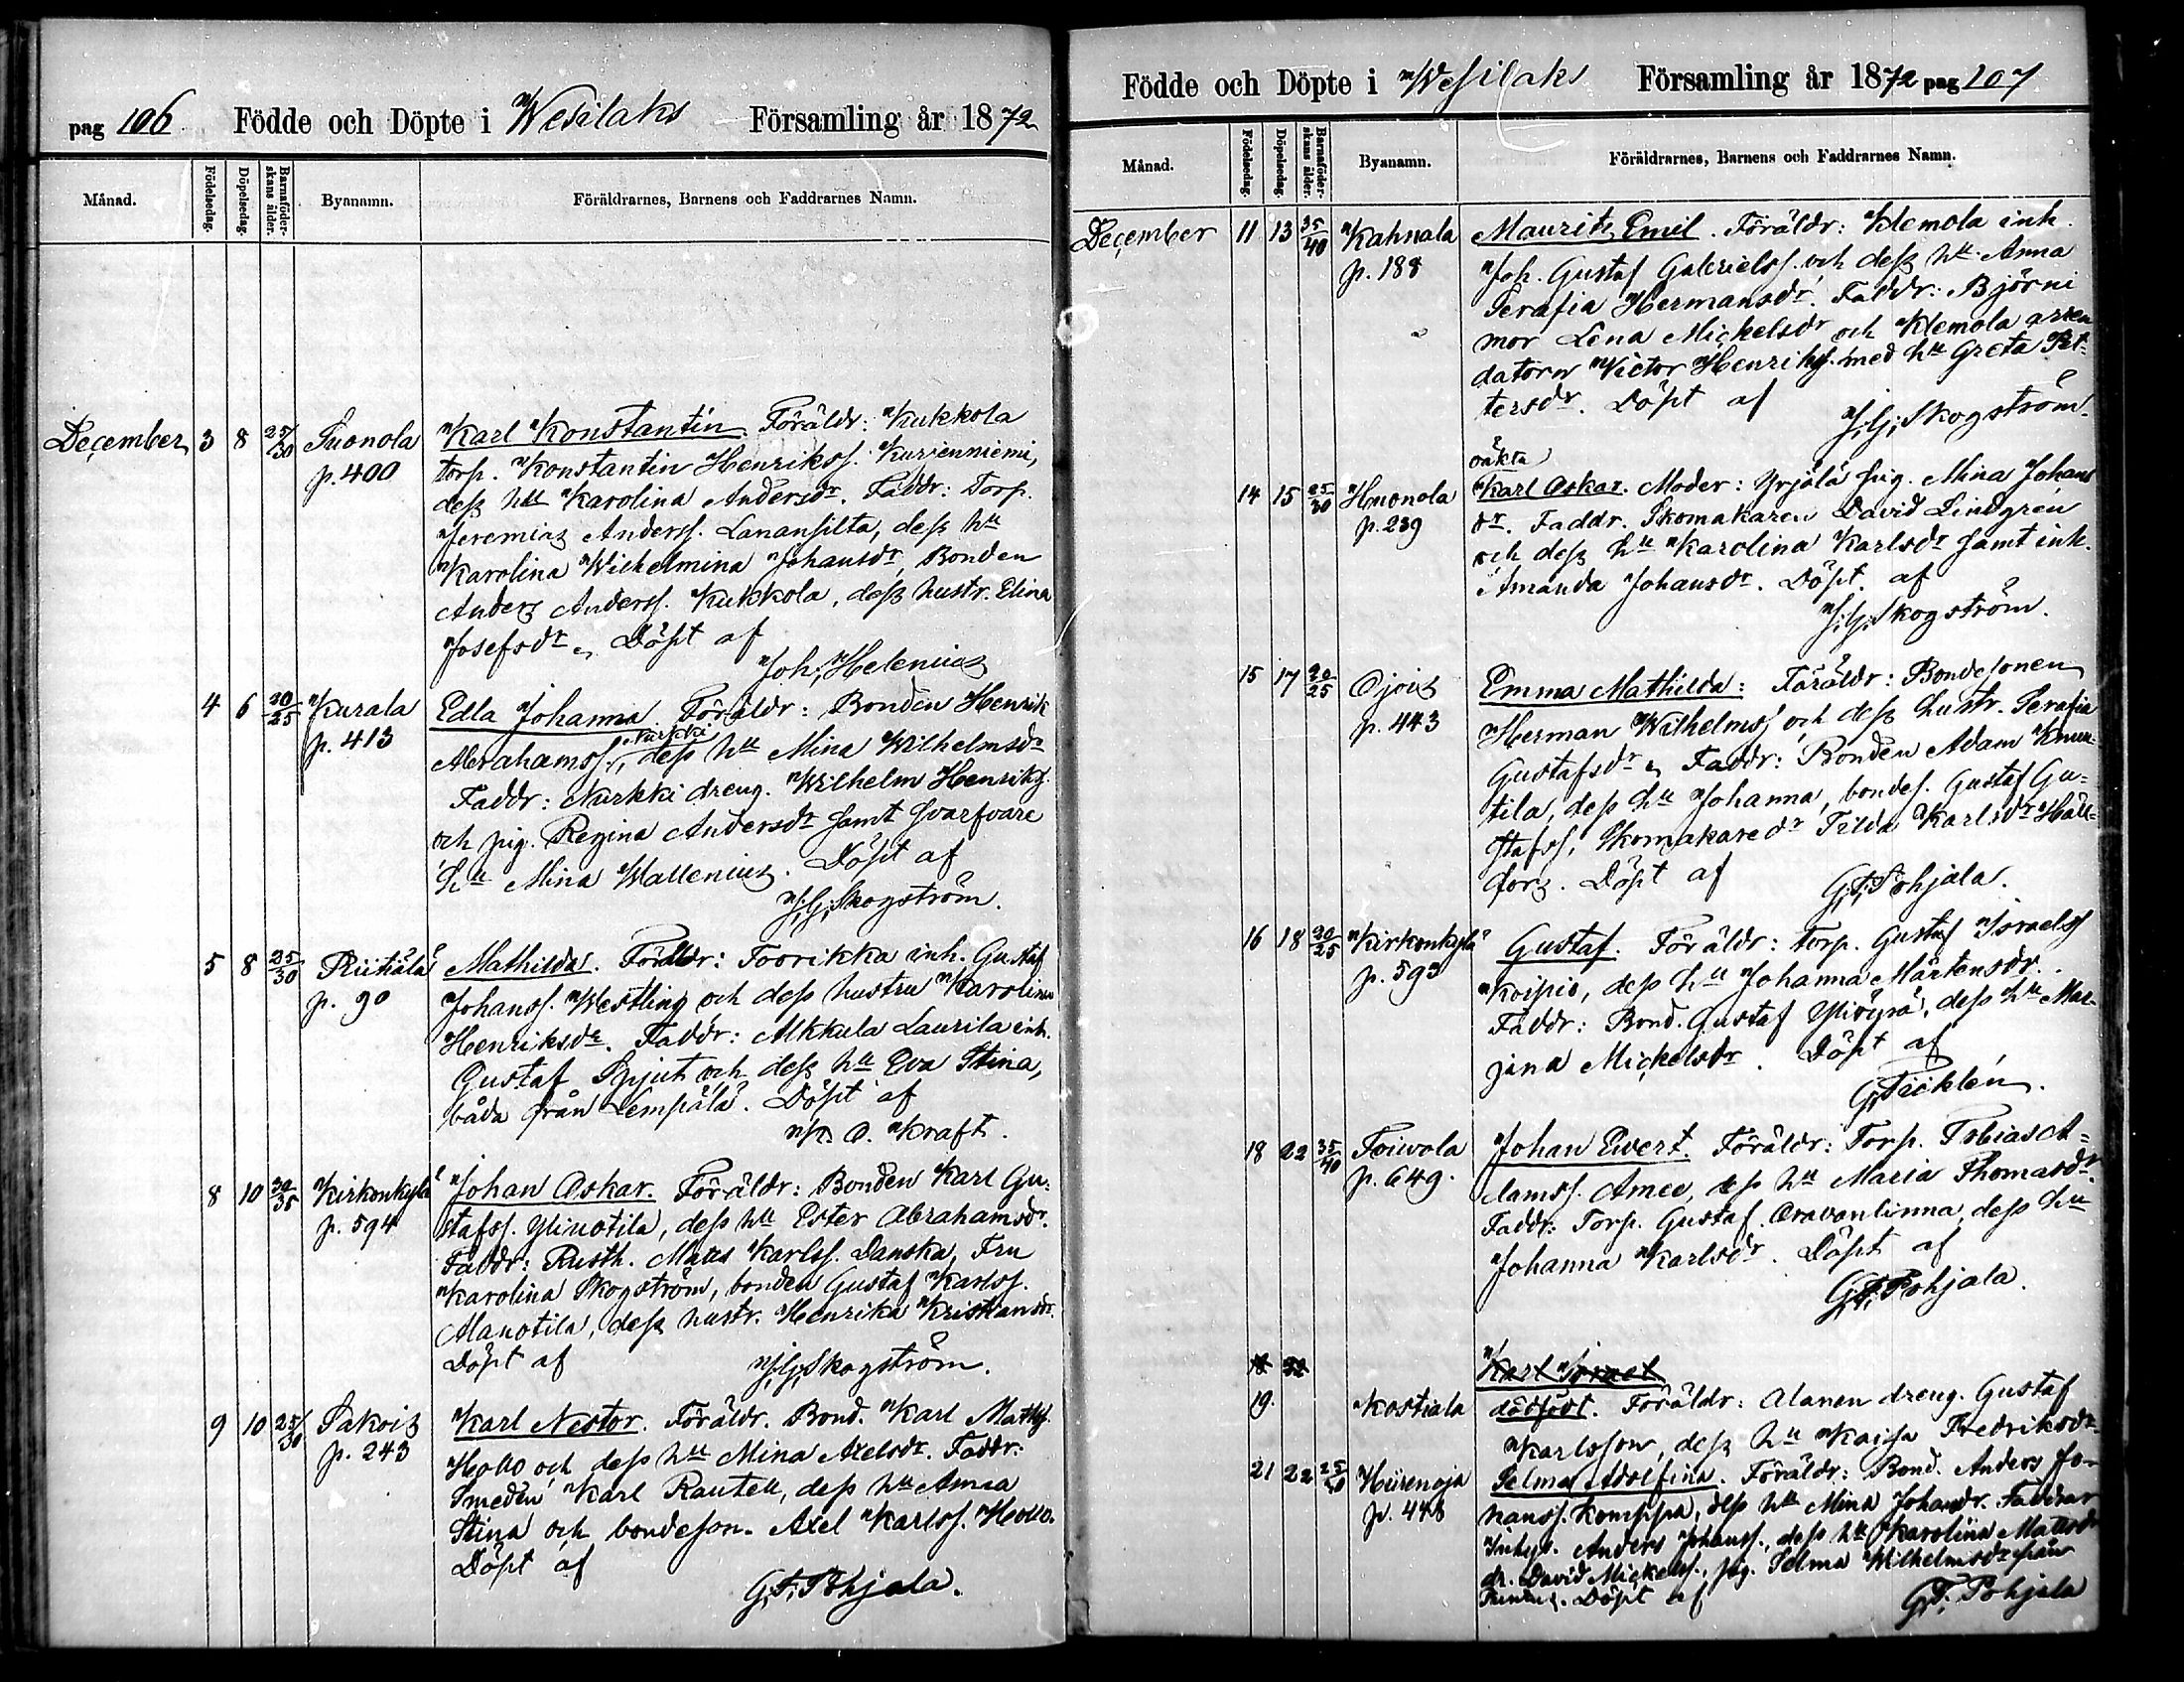 pag 106 Födde och Döpte i Wesilaks Församling år 1872
Månad. Födelsedag. Döpelsedag. Barnaföder-skans ålder. Byanamn. Föräldrarnes, Barnens och Faddrarnes Namn.
December 3 8 25/30 Suonola Karl Konstantin. Föräldr: Kukkola
p. 400 torp. Konstantin Henrikss. Kurienniemi,
dess hu Karolina Andersdr. Faddr: Torp.
Jeremias Anderss. Lanansilta, dess hu
Karolina Wilhelmina Johansdr, Bonden
Anders Anderss. Kukkola, dess hustr. Elina
Josefsdr. Döpt af
Joh. Helenius
4 6 20/25 Kurala Edla Johanna. Föräldr: Bonden Henrik
p. 413 Abrahamss. Nurkki, dess hu Mina Wilhelmsdr
Faddr: Nurkki dreng. Wilhelm Henriks.
och pig. Regina Andersdr samt svarfvare
hu Mina Wallenius. Döpt af
J. G. Skogström.
5 8 25/30 Riitiälä Mathilda. Föräldr: Toorikka inh. Gustaf
p. 90 Johanss. Westling och dess hustru Karolina
Henriksdr. Faddr: Mkkula Laurila inh.
Gustaf Spjut och dess hu Eva Stina,
båda från Lempälä. Döpt af
K. O. Kraft.
8 10 30/35 Kirkonkylä Johan Oskar. Föräldr: Bonden Karl Gu-
p. 594 stafss. Ylinotila, dess hu Ester Abrahamsdr.
Faddr: Rusth. Matts Karlss. Danska, Fru
Karolina Skogström, bonden Gustaf Karlss.
Alanotila, dess hustr. Henrika Kristiansdr.
Döpt af J. G. Skogström.
9 10 25/30 Sakois Karl Nestor. Föräldr. Bond. Karl Matts.
p. 243 Hollo och dess hu Mina Axelsdr. Faddr:
Smeden Karl Rautell, dess hu Anna
Stina och bondeson. Axel Karlss. Hollo.
Döpt af
G. F. Pohjala.
Födde och Döpte i Wesilaks Församling år 1872 pag 107
Månad. Födelsedag. Döpelsedag. Barnaföder-skans ålder. Byanamn. Föräldrarnes, Barnens och Faddrarnes Namn.
December 11 13 35/40 Kahnala Mauritz Emil. Föräldr: Klemola inh.
p. 188 Joh. Gustaf Gabrielss. och dess hu Anna
Serafia Hermansdr. Faddr: Björni
mor Lena Mickelsdr och Klemola arren
datorn Victor Henriks. med hu Greta Pet-
tersdr. Döpt af
J. G. Skogström.
oäkta
14 15 25/30 Huonola Karl Oskar. Moder: Yrjölä pig. Mina Johans
p. 239 dr. Faddr. Skomakaren David Lindgrén
och dess hu Karolina Karlsdr samt inh.
Amanda Johansdr. Döpt af
J. G. Skogström.
15 17 20/25 Ojois Emma Mathilda: Föräldr: Bondesonen
p. 443 Herman Wilhelmss. och dess hustr. Serafia
Gustafsdr. Faddr: Bonden Adam Knuu-
tila, dess hu Johanna, bondes. Gustaf Gu-
stafss, Skomakaredr Tilda Karlsdr Häll-
fors. Döpt af G. F. Pohjala.
16 18 20/25 Kirkonkylä Gustaf. Föräldr: Torp. Gustaf Israelss
p. 593 Koipio, dess hu Johanna Mårtensdr.
Faddr: Bond. Gustaf Yliöyrä, dess hu Mar-
jana Mickelsdr. Döpt af
G. Ticklén.
18 22 35/40 Toivola Johan Evert. Föräldr: Torp. Tobias A-
p. 649. damss. Amee, dess hu Maria Thomasdr.
Faddr: Torp. Gustaf Oravanlinna, dess hu
Johanna Karlsdr. Döpt af
G. F. Pohjala.
18 22 Karl Israel
19. Kostiala dödfödt. Föräldr: Alanen dreng. Gustaf
Karlsson, dess hu Kaisa Fredriksdr
21 22 25/30 Hiirenoja Selma Adolfina. Föräldr: Bond. Anders Jo-
p. 448 hanss. Komppa, dess hu Mina Johansdr. Faddrar
Inhys. Anders Johanss., dess hu Karolina Mattsdr
dr. David Mickelss., pig. Selma Wilhelmsdr från
Döpt af G. F. Pohjala